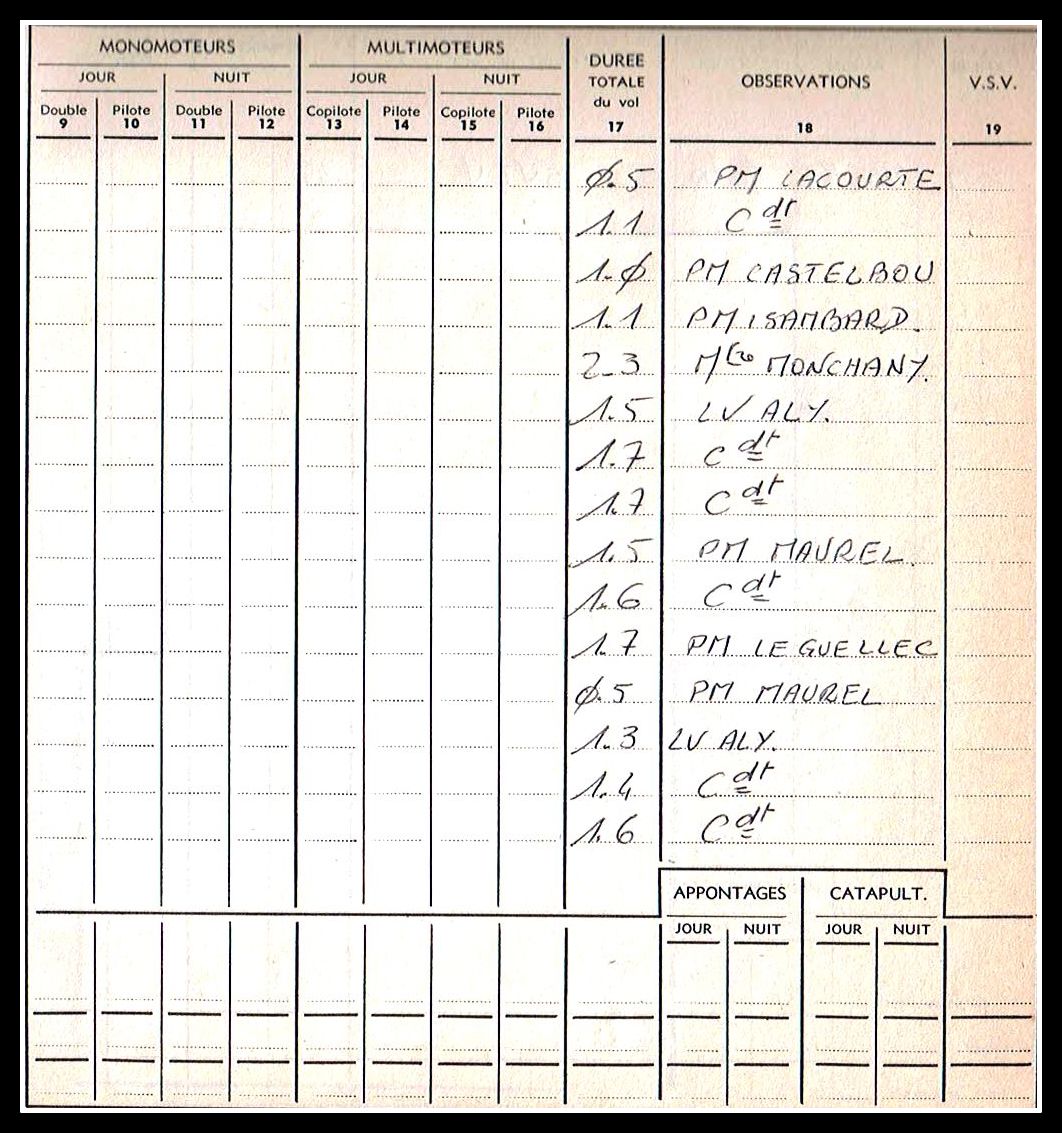 MONOMOTEURS MULTIMOTEURS DUREE TOTALE du vol OBSERVATIONS V.S.V.
JOUR NUIT JOUR NUIT
Double Pilote Double Pilote Copilote Pilote Copilote Pilote
9 10 11 12 13 14 15 16 17 18 19
Ø.5 PM LACOURTE
1.1 Cdt
1.Ø PM CASTELBOU
1.1 PM ISAMBARD.
2-3 MONCHANY.
1.5 LV ALY.
1.7 Cdt
1.7 Cdt
1.5 PM MAUREL.
1.6 Cdt
1.7 PM LE GUELLEC
Ø.5 PM MAUREL
1.3 LV ALY.
1.4 Cdt
1.6 Cdt
APPONTAGES CATAPULT.
JOUR NUIT JOUR NUIT